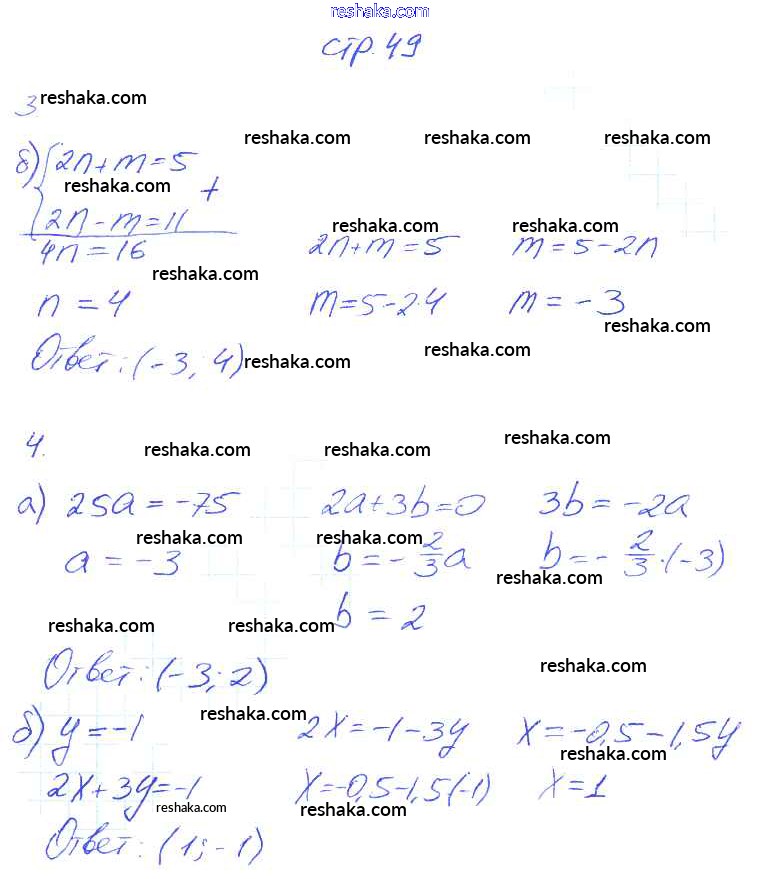 reshaka.com
стр. 49
3 reshaka.com
reshaka.com reshaka.com reshaka.com
б) { 2n + m = 5
reshaka.com +
2n - m = 11 reshaka.com reshaka.com
4n = 16 2n + m = 5 m = 5 - 2n
reshaka.com
n = 4 m = 5 - 2·4 m = -3
reshaka.com
Ответ: (-3; 4) reshaka.com reshaka.com
4. reshaka.com reshaka.com reshaka.com
а) 25a = -75 2a + 3b = 0 3b = -2a
reshaka.com reshaka.com
a = -3 b = - 2/3 a b = - 2/3 · (-3)
reshaka.com
b = 2
reshaka.com reshaka.com
Ответ: (-3; 2) reshaka.com
reshaka.com
б) y = -1 2x = -1 - 3y x = -0,5 - 1,5y
reshaka.com
2x + 3y = -1 x = -0,5 - 1,5(-1) x = 1
reshaka.com reshaka.com
Ответ: (1; -1)